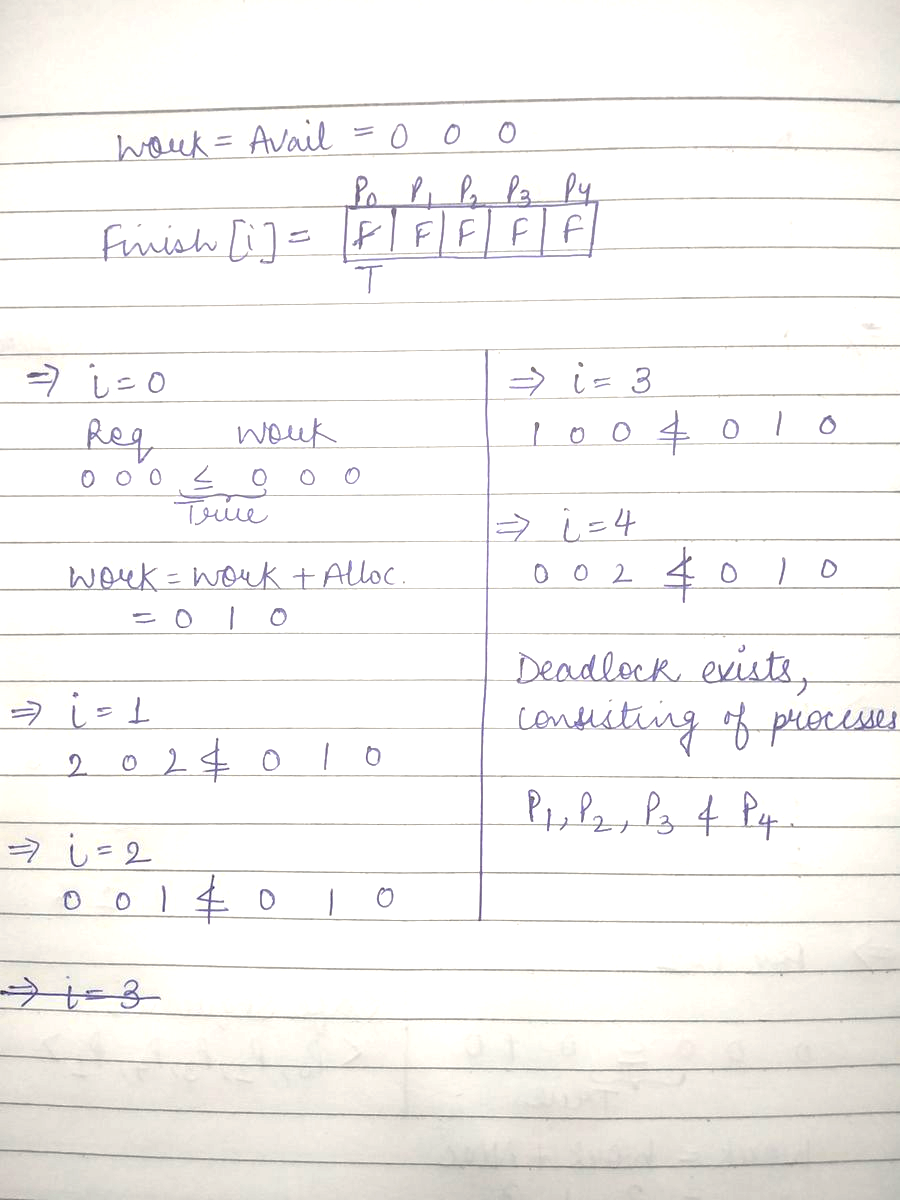 Work = Avail = 0 0 0
P0 P1 P2 P3 P4
Finish [i] = F F F F F
T
⇒ i = 0
Req Work
0 0 0 ≤ 0 0 0
True
Work = Work + Alloc.
= 0 1 0
⇒ i = 1
2 0 2 ≰ 0 1 0
⇒ i = 2
0 0 1 ≰ 0 1 0
⇒ i = 3
⇒ i = 3
1 0 0 ≰ 0 1 0
⇒ i = 4
0 0 2 ≰ 0 1 0
Deadlock exists,
consisting of processes
P1, P2, P3 & P4.